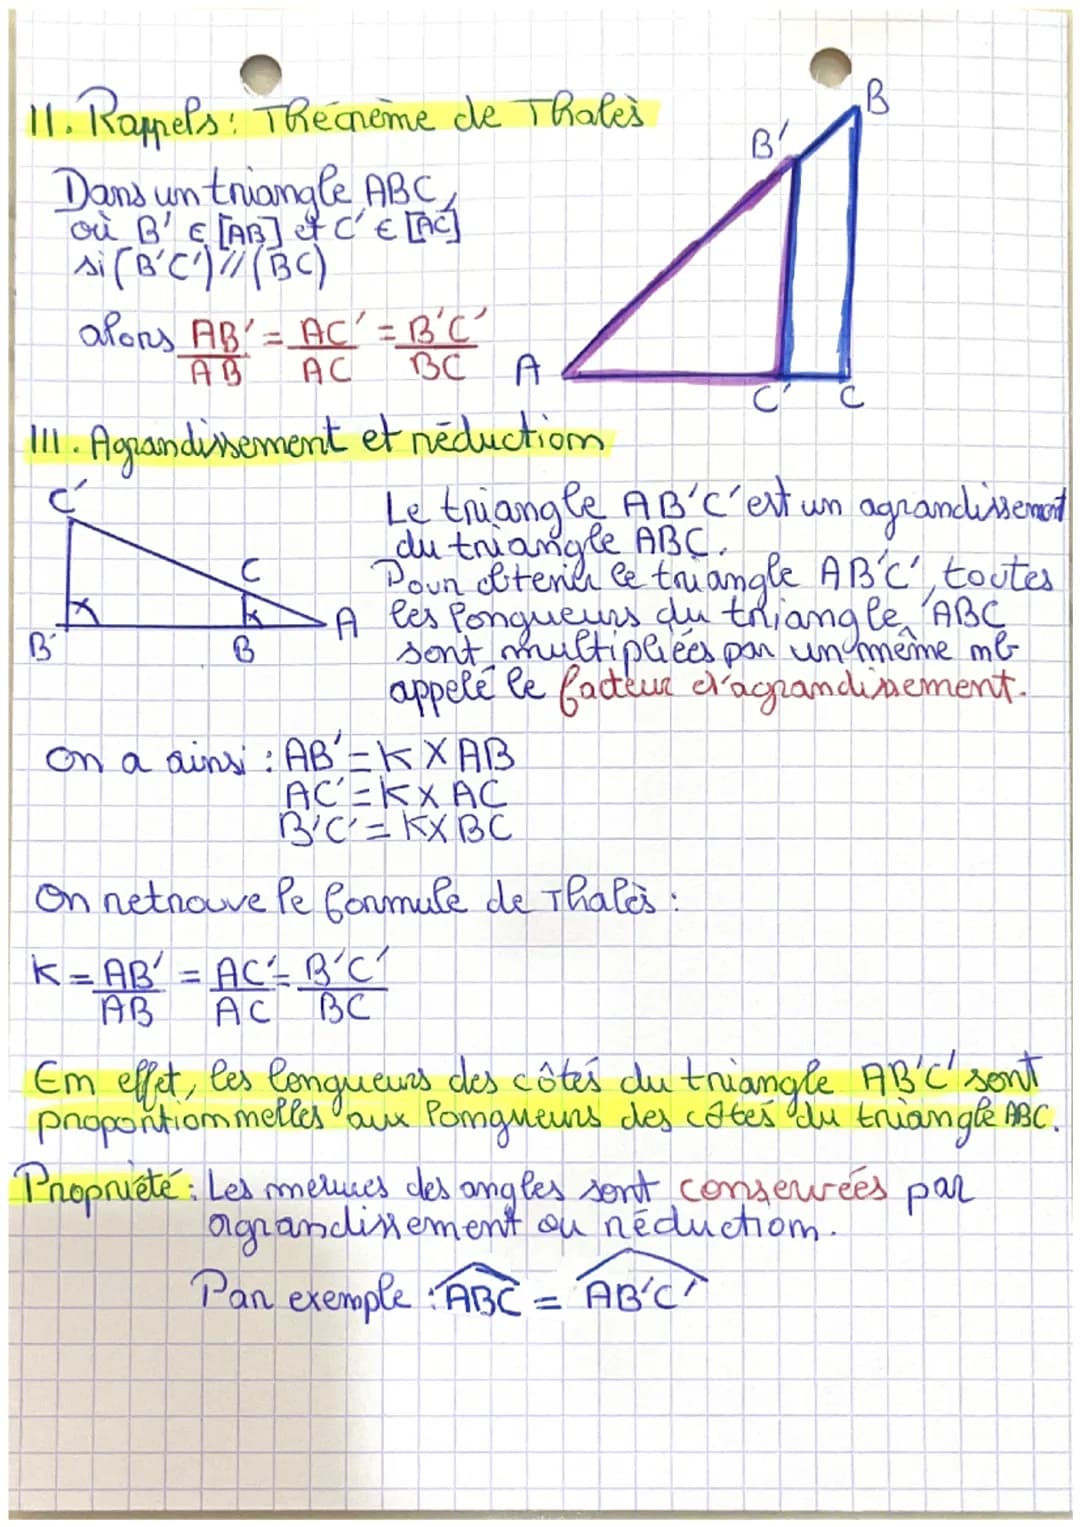 II. Rappels : Théorème de Thalès
Dans un triangle ABC,
où B' ∈ [AB] et C' ∈ [AC]
si (B'C') // (BC)
alors AB'/AB = AC'/AC = B'C'/BC
B
B'
A
C'
C
III. Agrandissement et réduction
C'
C
A
B'
B
Le triangle AB'C' est un agrandissement
du triangle ABC.
Pour obtenir le triangle AB'C', toutes
les longueurs du triangle ABC
sont multipliées par un même nb
appelé le facteur d'agrandissement.
On a ainsi : AB' = K X AB
AC' = K X AC
B'C' = K X BC
On retrouve le formule de Thalès :
K = AB'/AB = AC'/AC = B'C'/BC
En effet, les longueurs des côtés du triangle AB'C' sont
proportionnelles aux longueurs des côtés du triangle ABC.
Propriété : Les mesures des angles sont conservées par
agrandissement ou réduction.
Par exemple : ABC = AB'C'